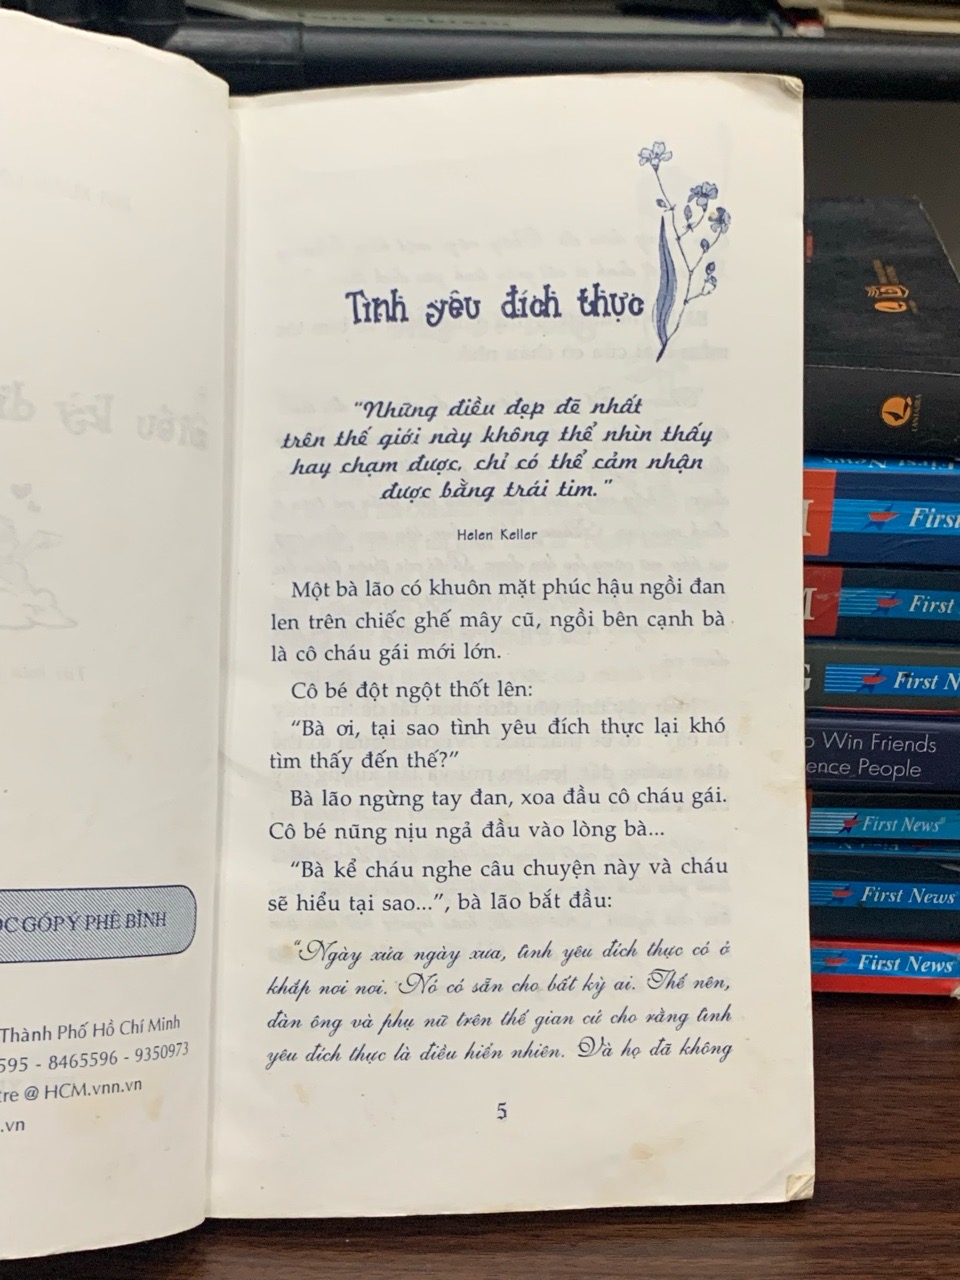 ỌC GÓP Ý PHÊ BÌNH
Thành Phố Hồ Chí Minh
595 - 8465596 - 9350973
tre @ HCM.vnn.vn
.vn
Tình yêu đích thực
"Những điều đẹp đẽ nhất
trên thế giới này không thể nhìn thấy
hay chạm được, chỉ có thể cảm nhận
được bằng trái tim."
Helen Keller
Một bà lão có khuôn mặt phúc hậu ngồi đan
len trên chiếc ghế mây cũ, ngồi bên cạnh bà
là cô cháu gái mới lớn.
Cô bé đột ngột thốt lên:
"Bà ơi, tại sao tình yêu đích thực lại khó
tìm thấy đến thế?"
Bà lão ngừng tay đan, xoa đầu cô cháu gái.
Cô bé nũng nịu ngả đầu vào lòng bà...
"Bà kể cháu nghe câu chuyện này và cháu
sẽ hiểu tại sao...", bà lão bắt đầu:
"Ngày xửa ngày xưa, tình yêu đích thực có ở
khắp nơi nơi. Nó có sẵn cho bất kỳ ai. Thế nên,
đàn ông và phụ nữ trên thế gian cứ cho rằng tình
yêu đích thực là điều hiển nhiên. Và họ đã không
5
First News
First
First
First N
Win Friends
ence People
First News
First News
First News